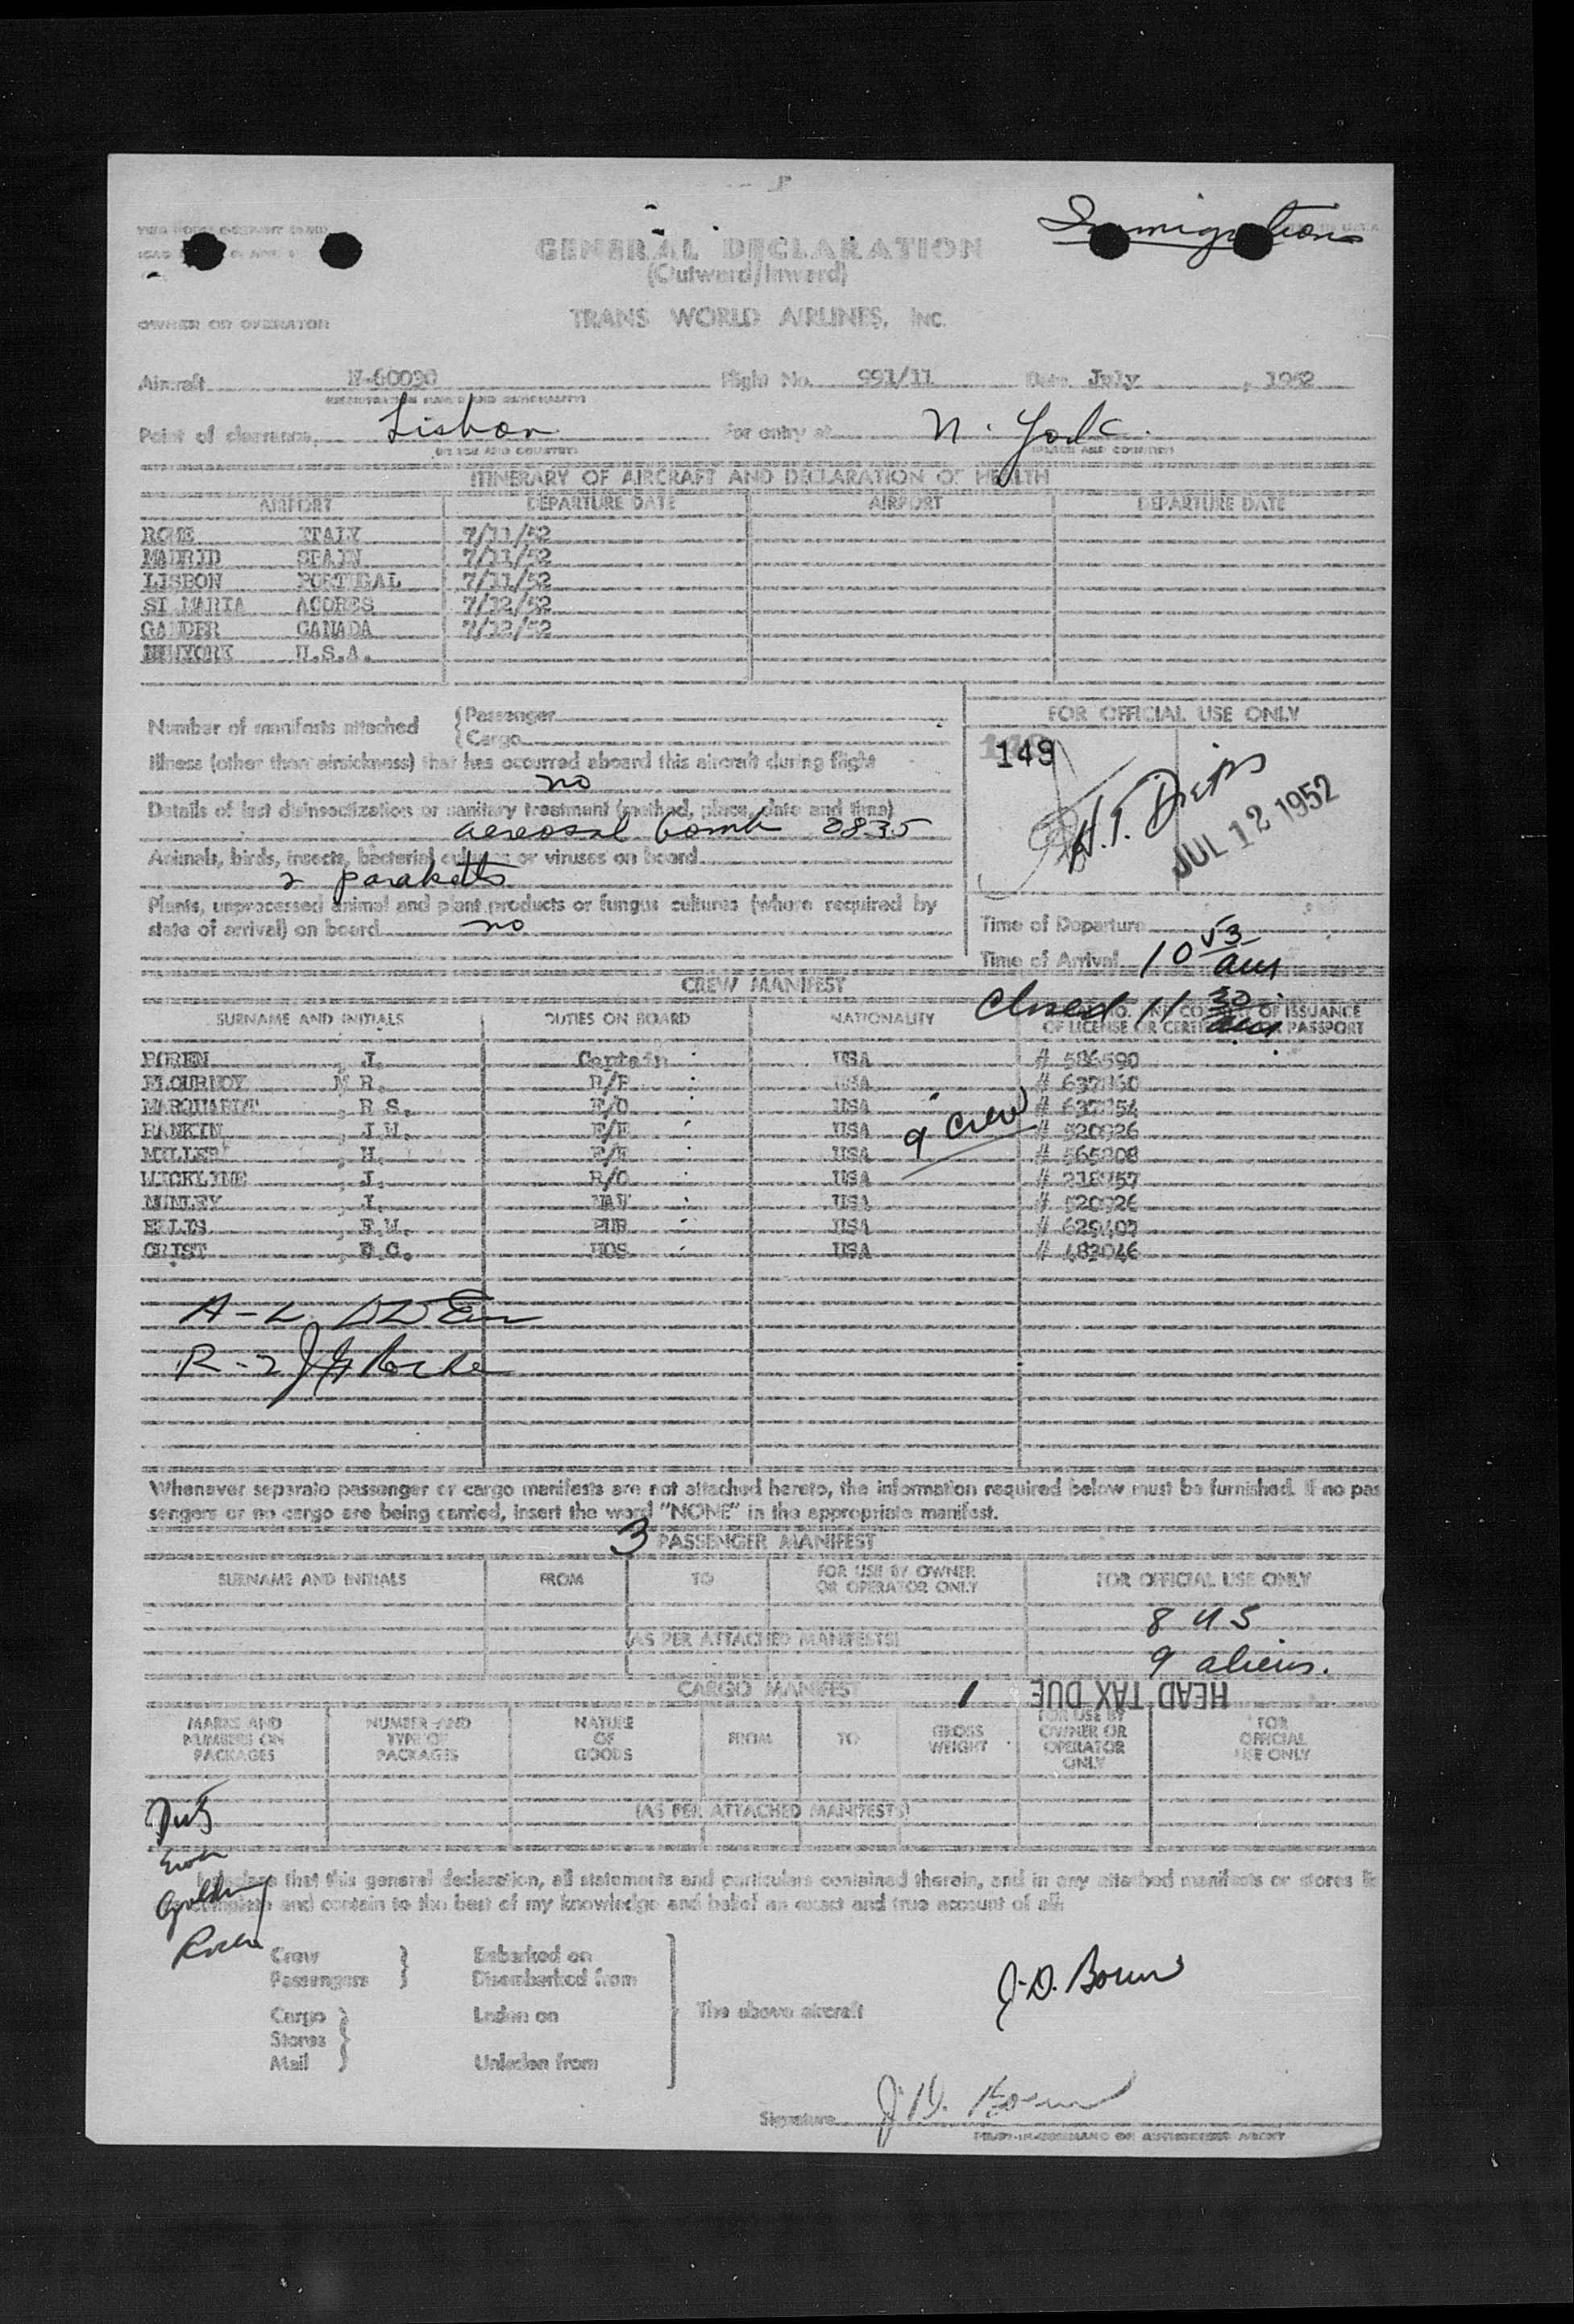 Immigration
GENERAL DECLARATION
(Outward/Inward)
OWNER OR OPERATOR
TRANS WORLD AIRLINES, INC.
Aircraft N-60090 Flight No. 991/11 Date July , 1952
REGISTRATION MARKS AND NATIONALITY
Point of clearance, Lisbon For entry at N. York.
(PLACE AND COUNTRY) (PLACE AND COUNTRY)
ITINERARY OF AIRCRAFT AND DECLARATION OF HEALTH
AIRPORT DEPARTURE DATE AIRPORT DEPARTURE DATE
ROME ITALY 7/11/52
MADRID SPAIN 7/11/52
LISBON PORTUGAL 7/11/52
ST MARIA ACORES 7/12/52
GANDER CANADA 7/12/52
NEWYORK U.S.A.
Number of manifests attached (Passenger
(Cargo
FOR OFFICIAL USE ONLY
149
JUL 12 1952
Illness (other than airsickness) that has occurred aboard this aircraft during flight
no
Details of last disinsectization or sanitary treatment (method, place, date and time)
aereosol bomb 0835
Animals, birds, insects, bacterial cultures or viruses on board
2 paraketts
Plants, unprocessed animal and plant products or fungus cultures (where required by
state of arrival) on board no
Time of Departure
Time of Arrival 10 53 am
Closed 11 30 am
CREW MANIFEST
SURNAME AND INITIALS DUTIES ON BOARD NATIONALITY NO. AND COUNTRY OF ISSUANCE
OF LICENSE OR CERTIFICATE OR PASSPORT
BOREN , J. Captain USA # 586590
FLOURNOY R. USA
MARQUARDT , R S. F/O USA
RANKIN , J W. F/E USA # 520926
MILLER , H. F/E USA # 565208
WICKLINE , J. R/O USA
NUNLEY , I. NAV USA # 520926
ELLIS , E.W. PUR USA # 629407
CRIST , E.C. HOS USA # 483046
9 Crew
Whenever separate passenger or cargo manifests are not attached hereto, the information required below must be furnished. If no pas
sengers or no cargo are being carried, insert the word "NONE" in the appropriate manifest.
3 PASSENGER MANIFEST
SURNAME AND INITIALS FROM TO FOR USE BY OWNER
OR OPERATOR ONLY FOR OFFICIAL USE ONLY
8 US
(AS PER ATTACHED MANIFESTS)
9 aliens.
CARGO MANIFEST 1 HEAD TAX DUE
MARKS AND
NUMBERS ON
PACKAGES NUMBER AND
TYPE OF
PACKAGES NATURE
OF
GOODS FROM TO GROSS
WEIGHT FOR USE BY
OWNER OR
OPERATOR
ONLY FOR
OFFICIAL
USE ONLY
(AS PER ATTACHED MANIFESTS)
I declare that this general declaration, all statements and particulars contained therein, and in any attached manifests or stores li
complete and contain to the best of my knowledge and belief an exact and true account of all:
Crew
Passengers } Embarked on
Disembarked from
Cargo
Stores
Mail } Laden on
Unladen from
The above aircraft
J.D. Boren
Signature J.D. Boren
PILOT-IN-COMMAND OR AUTHORIZED AGENT